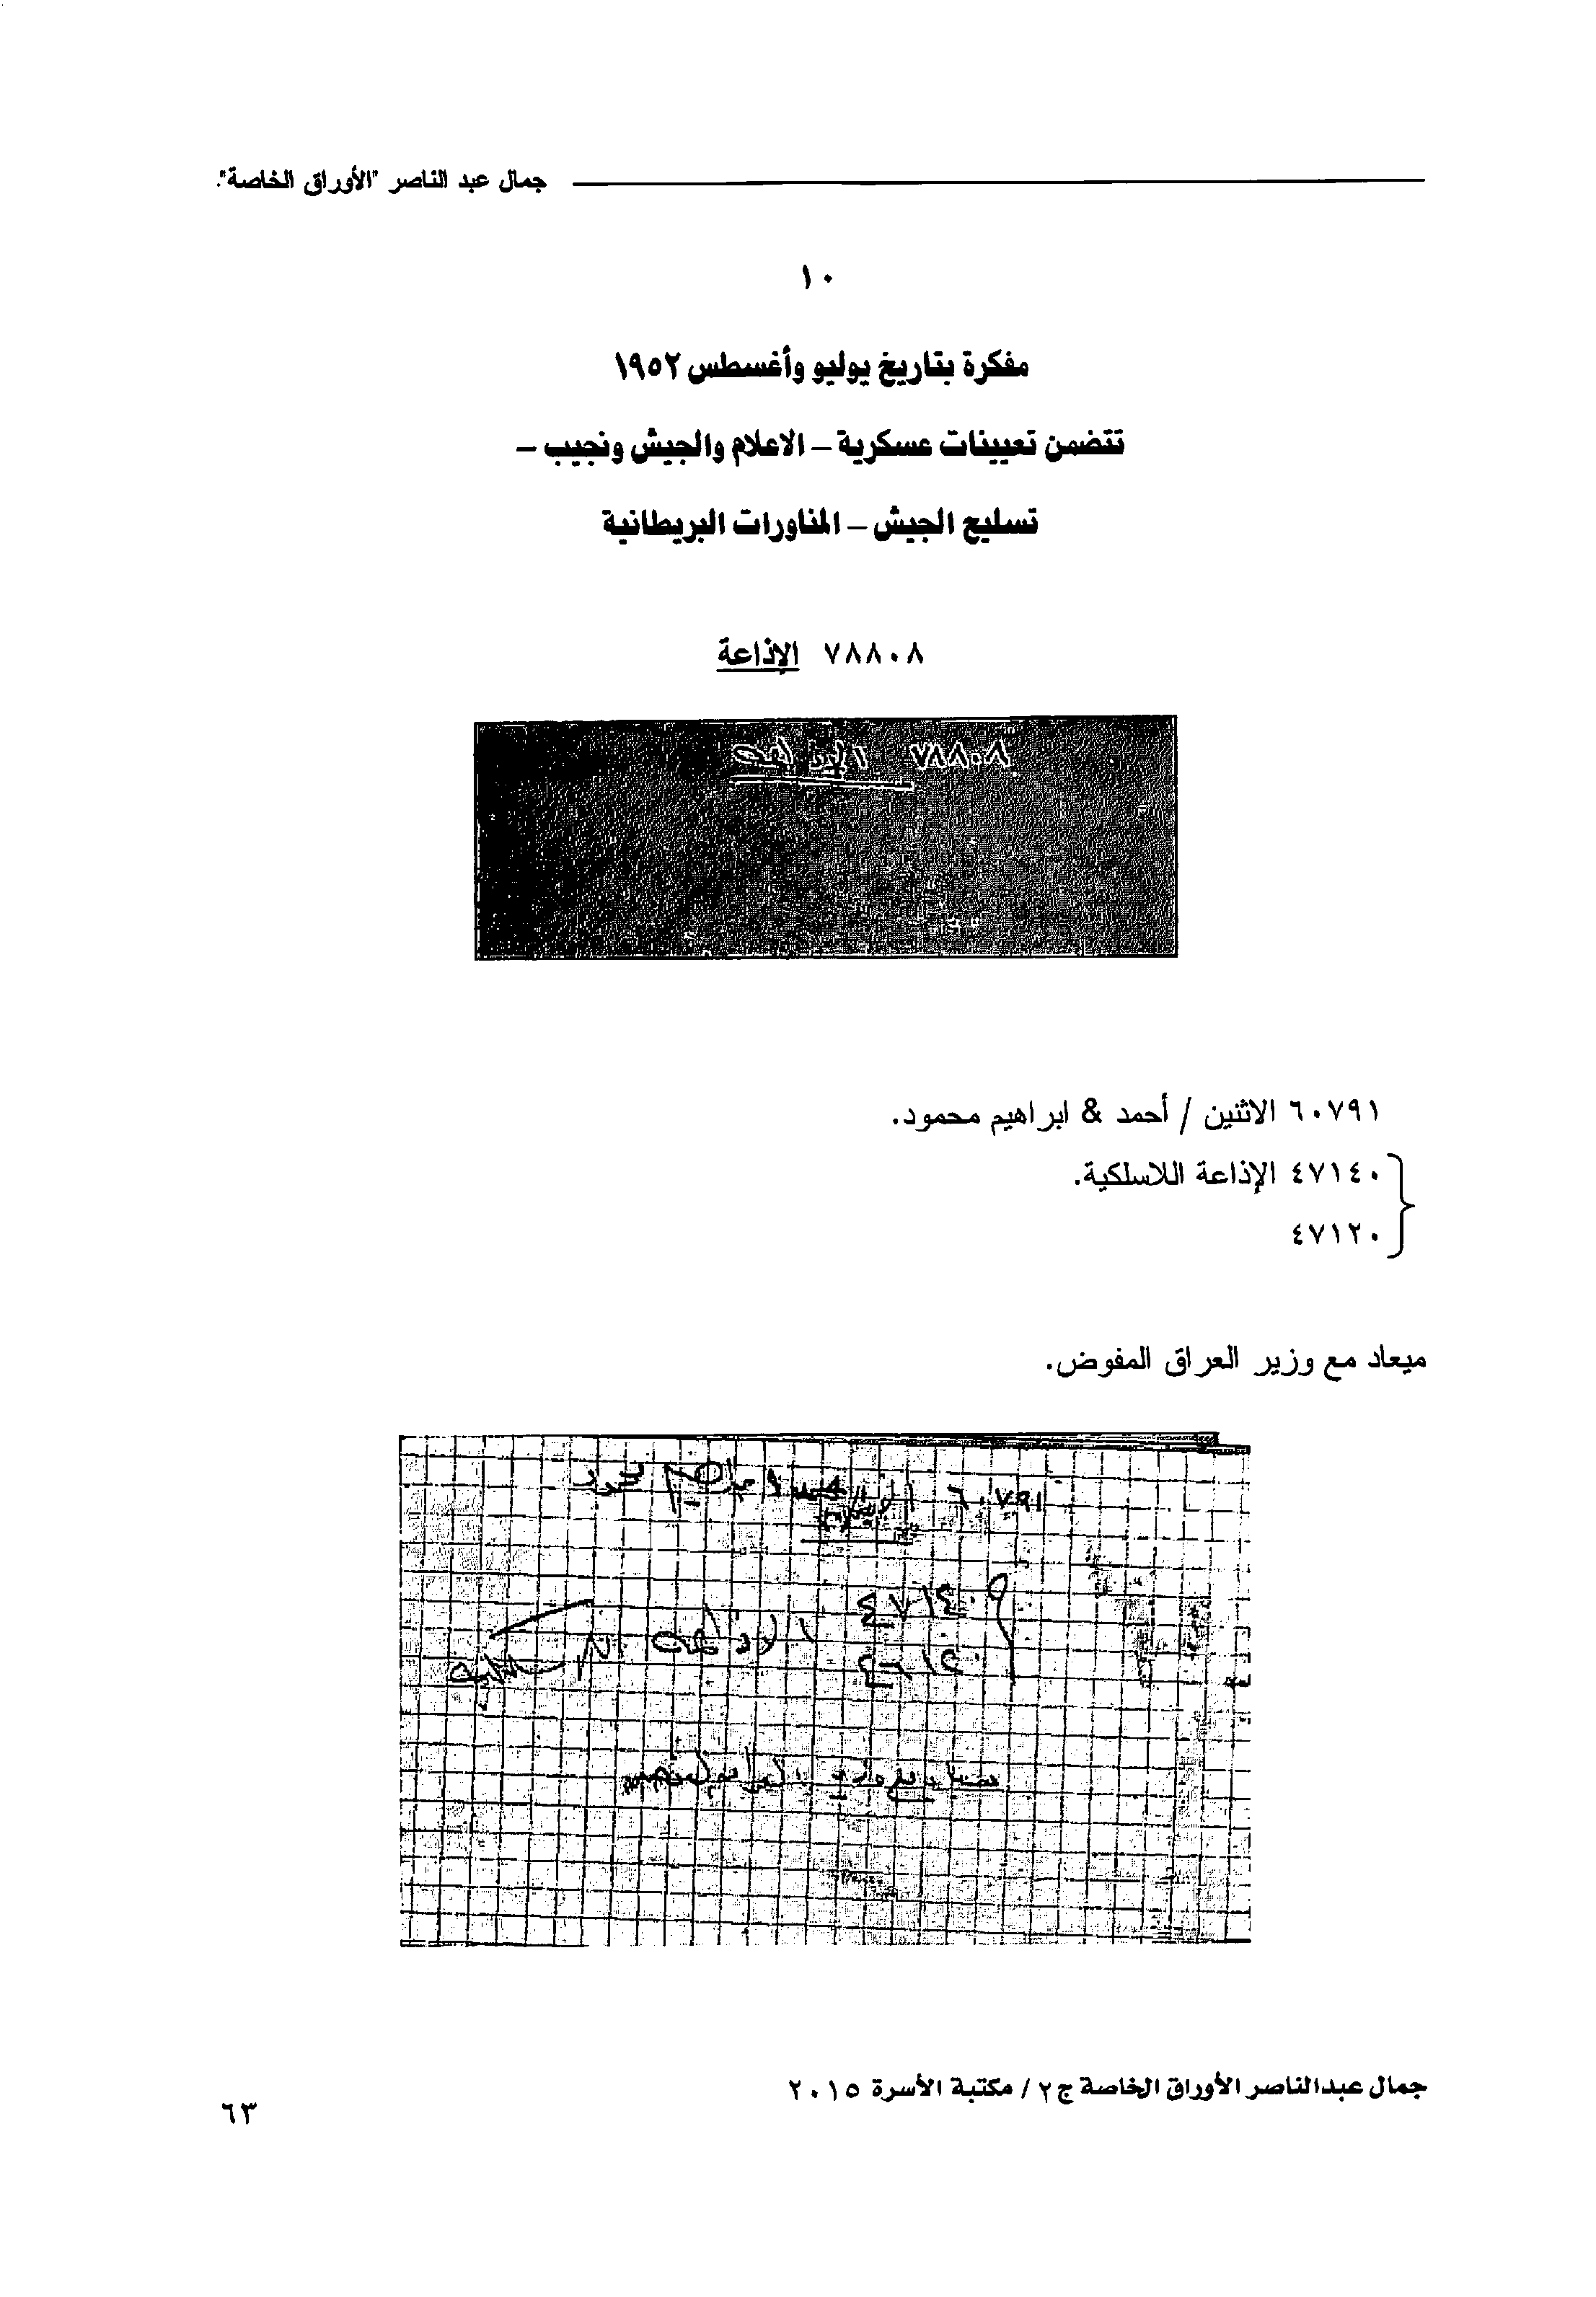 جمال عبد الناصر "الأوراق الخاصة".
١٠
مفكرة بتاريخ يوليو وأغسطس ١٩٥٢
تتضمن تعيينات عسكرية – الاعلام والجيش ونجيب –
تسليح الجيش – المناورات البريطانية
٧٨٨٠٨ الإذاعة
٧٨٨٠٨ الإذاعة
٦٠٧٩١ الاثنين / أحمد & ابراهيم محمود.
٤٧١٤٠ الإذاعة اللاسلكية.
٤٧١٢٠
ميعاد مع وزير العراق المفوض.
٦٠٧٩١ ابراهيم محمود
٤٧١٤٠
الإذاعة اللاسلكية
جمال عبدالناصر الأوراق الخاصة ج٢ / مكتبة الأسرة ٢٠١٥
٦٣